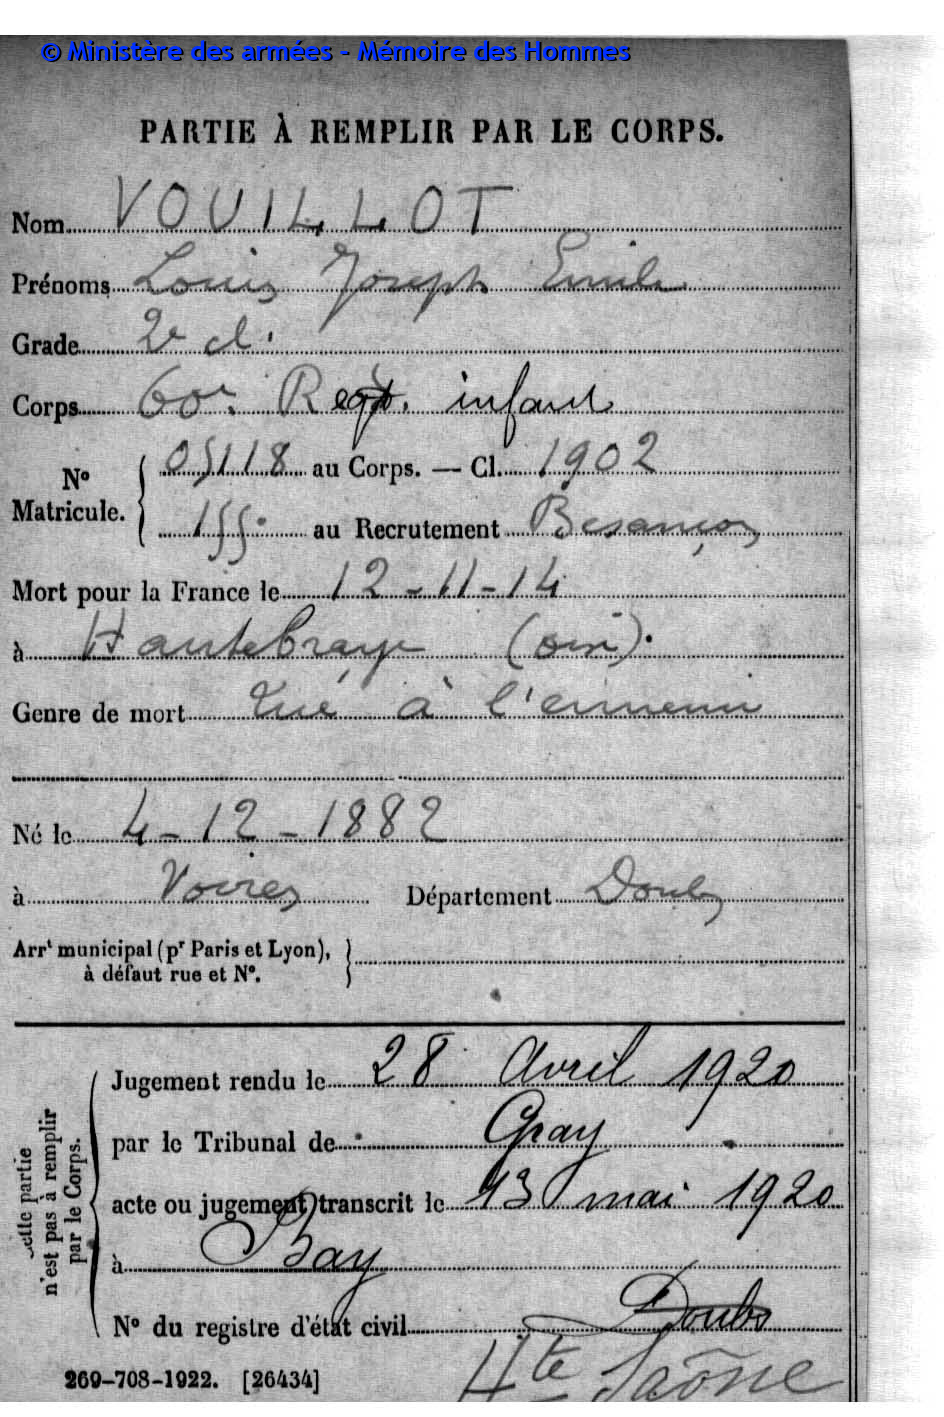 © Ministère des armées - Mémoire des Hommes
PARTIE À REMPLIR PAR LE CORPS.
Nom VOUILLOT
Prénoms Louis Joseph Emile
Grade 2e cl.
Corps 60e Regt. infant
Nº Matricule. 05118 au Corps. — Cl. 1902
155. au Recrutement Besançon
Mort pour la France le 12-11-14
à Hautebraye (oise).
Genre de mort Tué à l'ennemi
Né le 4-12-1882
à Voires Département Doubs
Arrt municipal (pr Paris et Lyon),
à défaut rue et Nº.
Cette partie
n'est pas à remplir
par le Corps.
Jugement rendu le 28 Avril 1920
par le Tribunal de Gray
acte ou jugement transcrit le 13 mai 1920
à Bay
Nº du registre d'état civil Doubs
Hte Saône
269-708-1922. [26434]